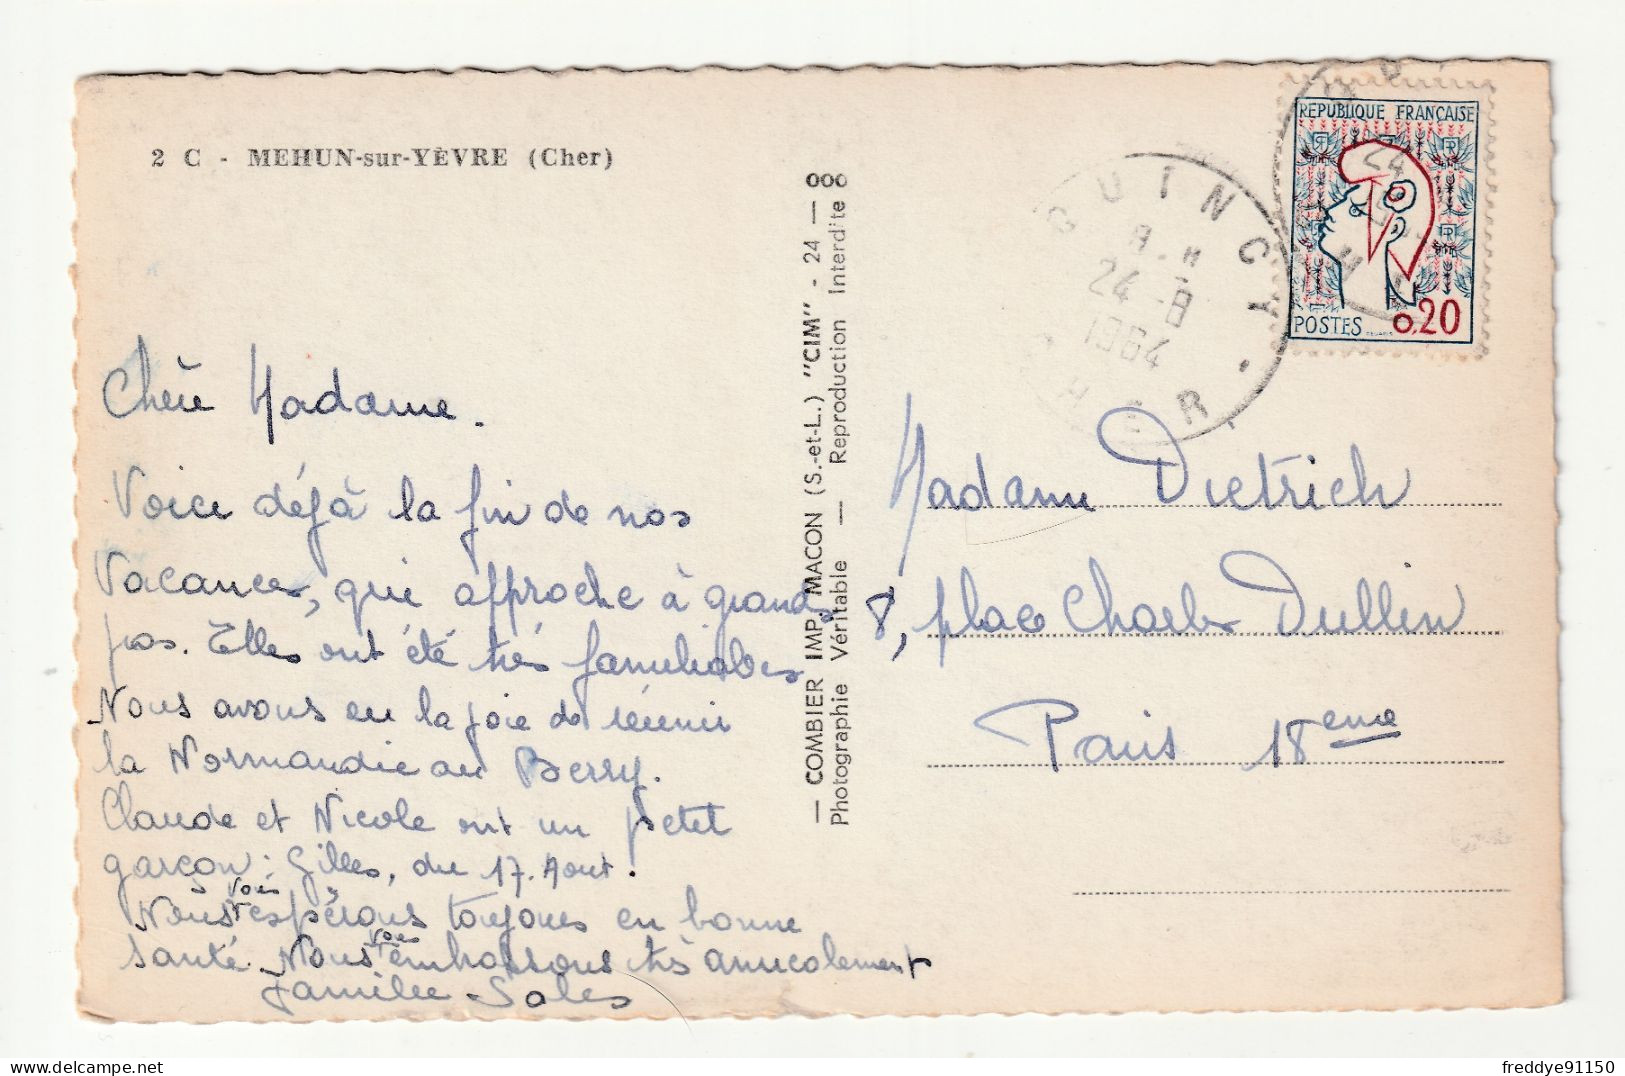 2 C - MEHUN-sur-YÈVRE (Cher)
Chère Madame.
Voici déjà la fin de nos
vacances, qui approche à grands
pas. Elles ont été très familiales
Nous avons eu la joie de réunir
la Normandie au Berry.
Claude et Nicole ont un petit
garçon : Gilles, du 17. Aout.
Nous vous espérons toujours en bonne
santé. Nous vous embrassons très amicalement
famille Sales
— COMBIER IMP. MACON (S.-et-L.) "CIM" - 24 —
Photographie Véritable — Reproduction Interdite
QUINCY
24 - 8
1964
CHER
REPUBLIQUE FRANÇAISE
POSTES 0,20
Madame Dietrich
8, place Charles Dullin
Paris 18eme
freddye91150